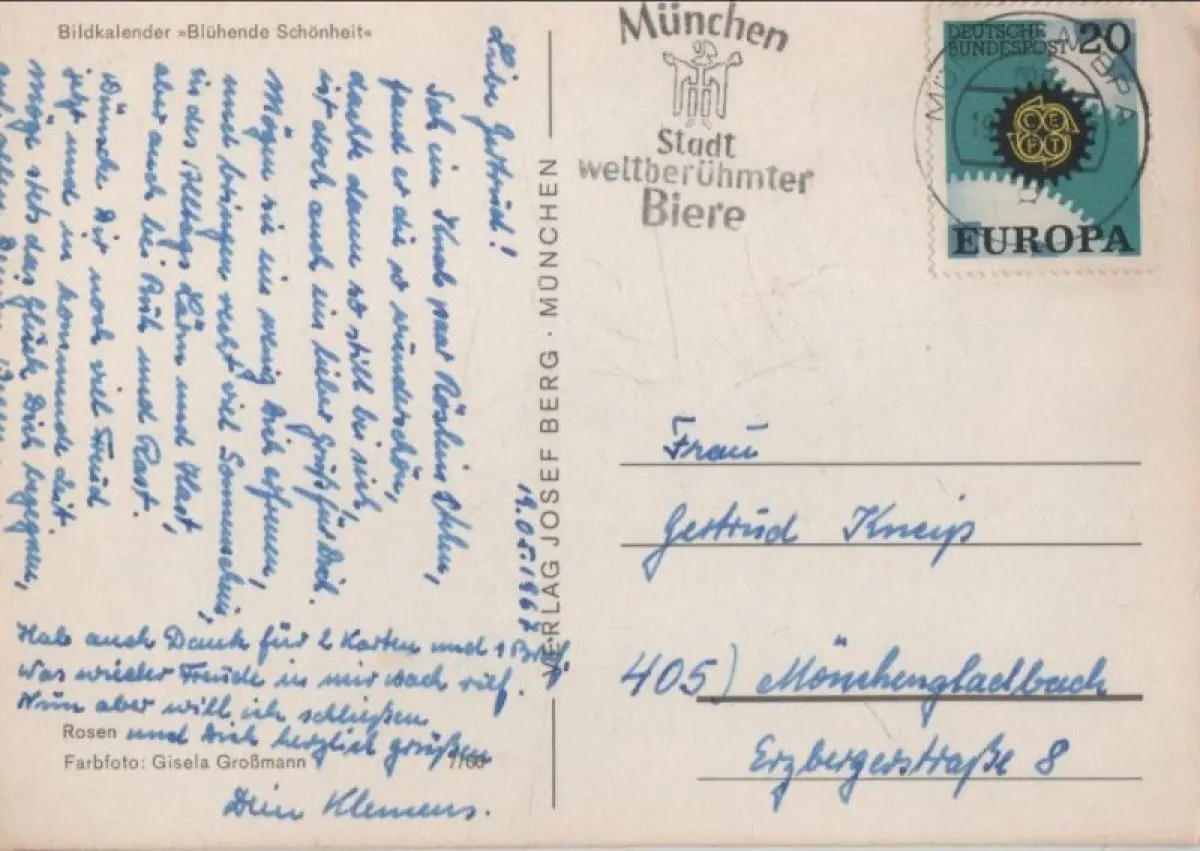 Bildkalender »Blühende Schönheit«
19.05.1967
Liebe Gertrud!
Sah ein Knab paar Röslein steh'n,
fand er die so wunderschön,
dachte dann so still bei sich,
ist doch auch ein lieber Gruß für Dich.
Mögen sie ein wenig Dich erfreuen,
und bringen recht viel Sonnenschein,
in des Alltags Lärm und Hast,
aber auch bei Ruh und Rast.
Wünsche Dir noch viel Freud
jetzt und in kommende Zeit
möge stets das Glück Dich begegnen,
auf allen
Hab auch Dank für 2 Karten und 1 Brief,
was wieder Freude in mir wach rief.
Nun aber will ich schließen
und Dich herzlich grüßen
Dein Klemens.
Rosen
Farbfoto: Gisela Großmann
7/66
VERLAG JOSEF BERG · MÜNCHEN
München
Stadt
weltberühmter
Biere
DEUTSCHE
BUNDESPOST
20
CEPT
EUROPA
Frau
Gertrud Kneip
405) Mönchengladbach
Erzbergerstraße 8